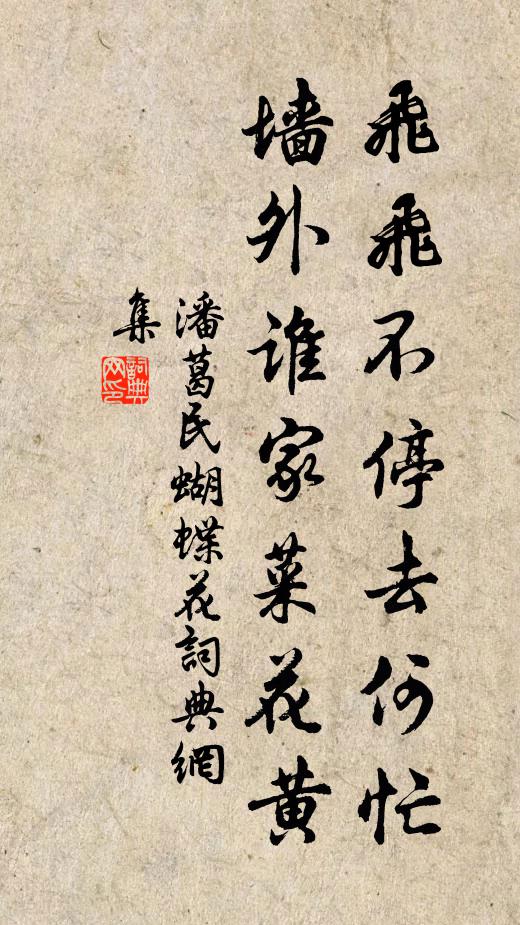 飛飛不停去何忙
墙外誰家菜花黄
潘葛民蝴蝶花詞典網
集
詞典
网印